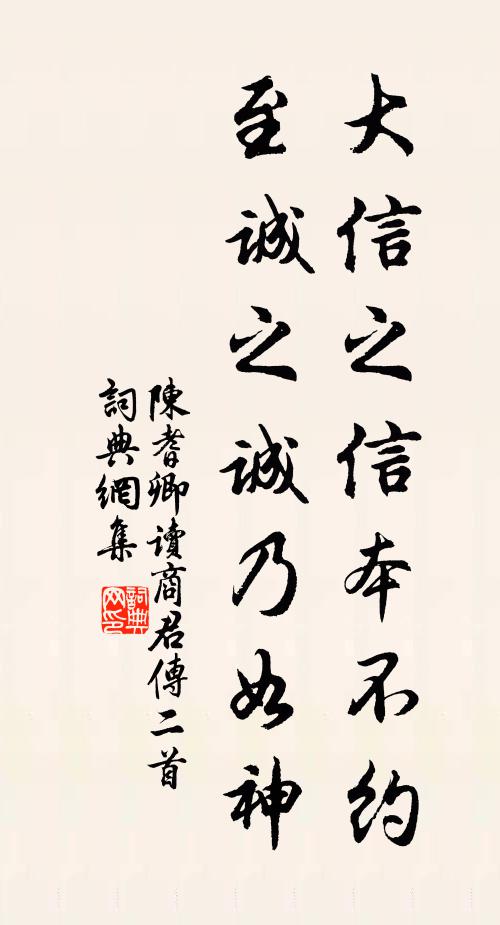 大信之信本不約
至誠之誠乃如神
陳耆卿讀商君傳二首
詞典網集
詞典网印